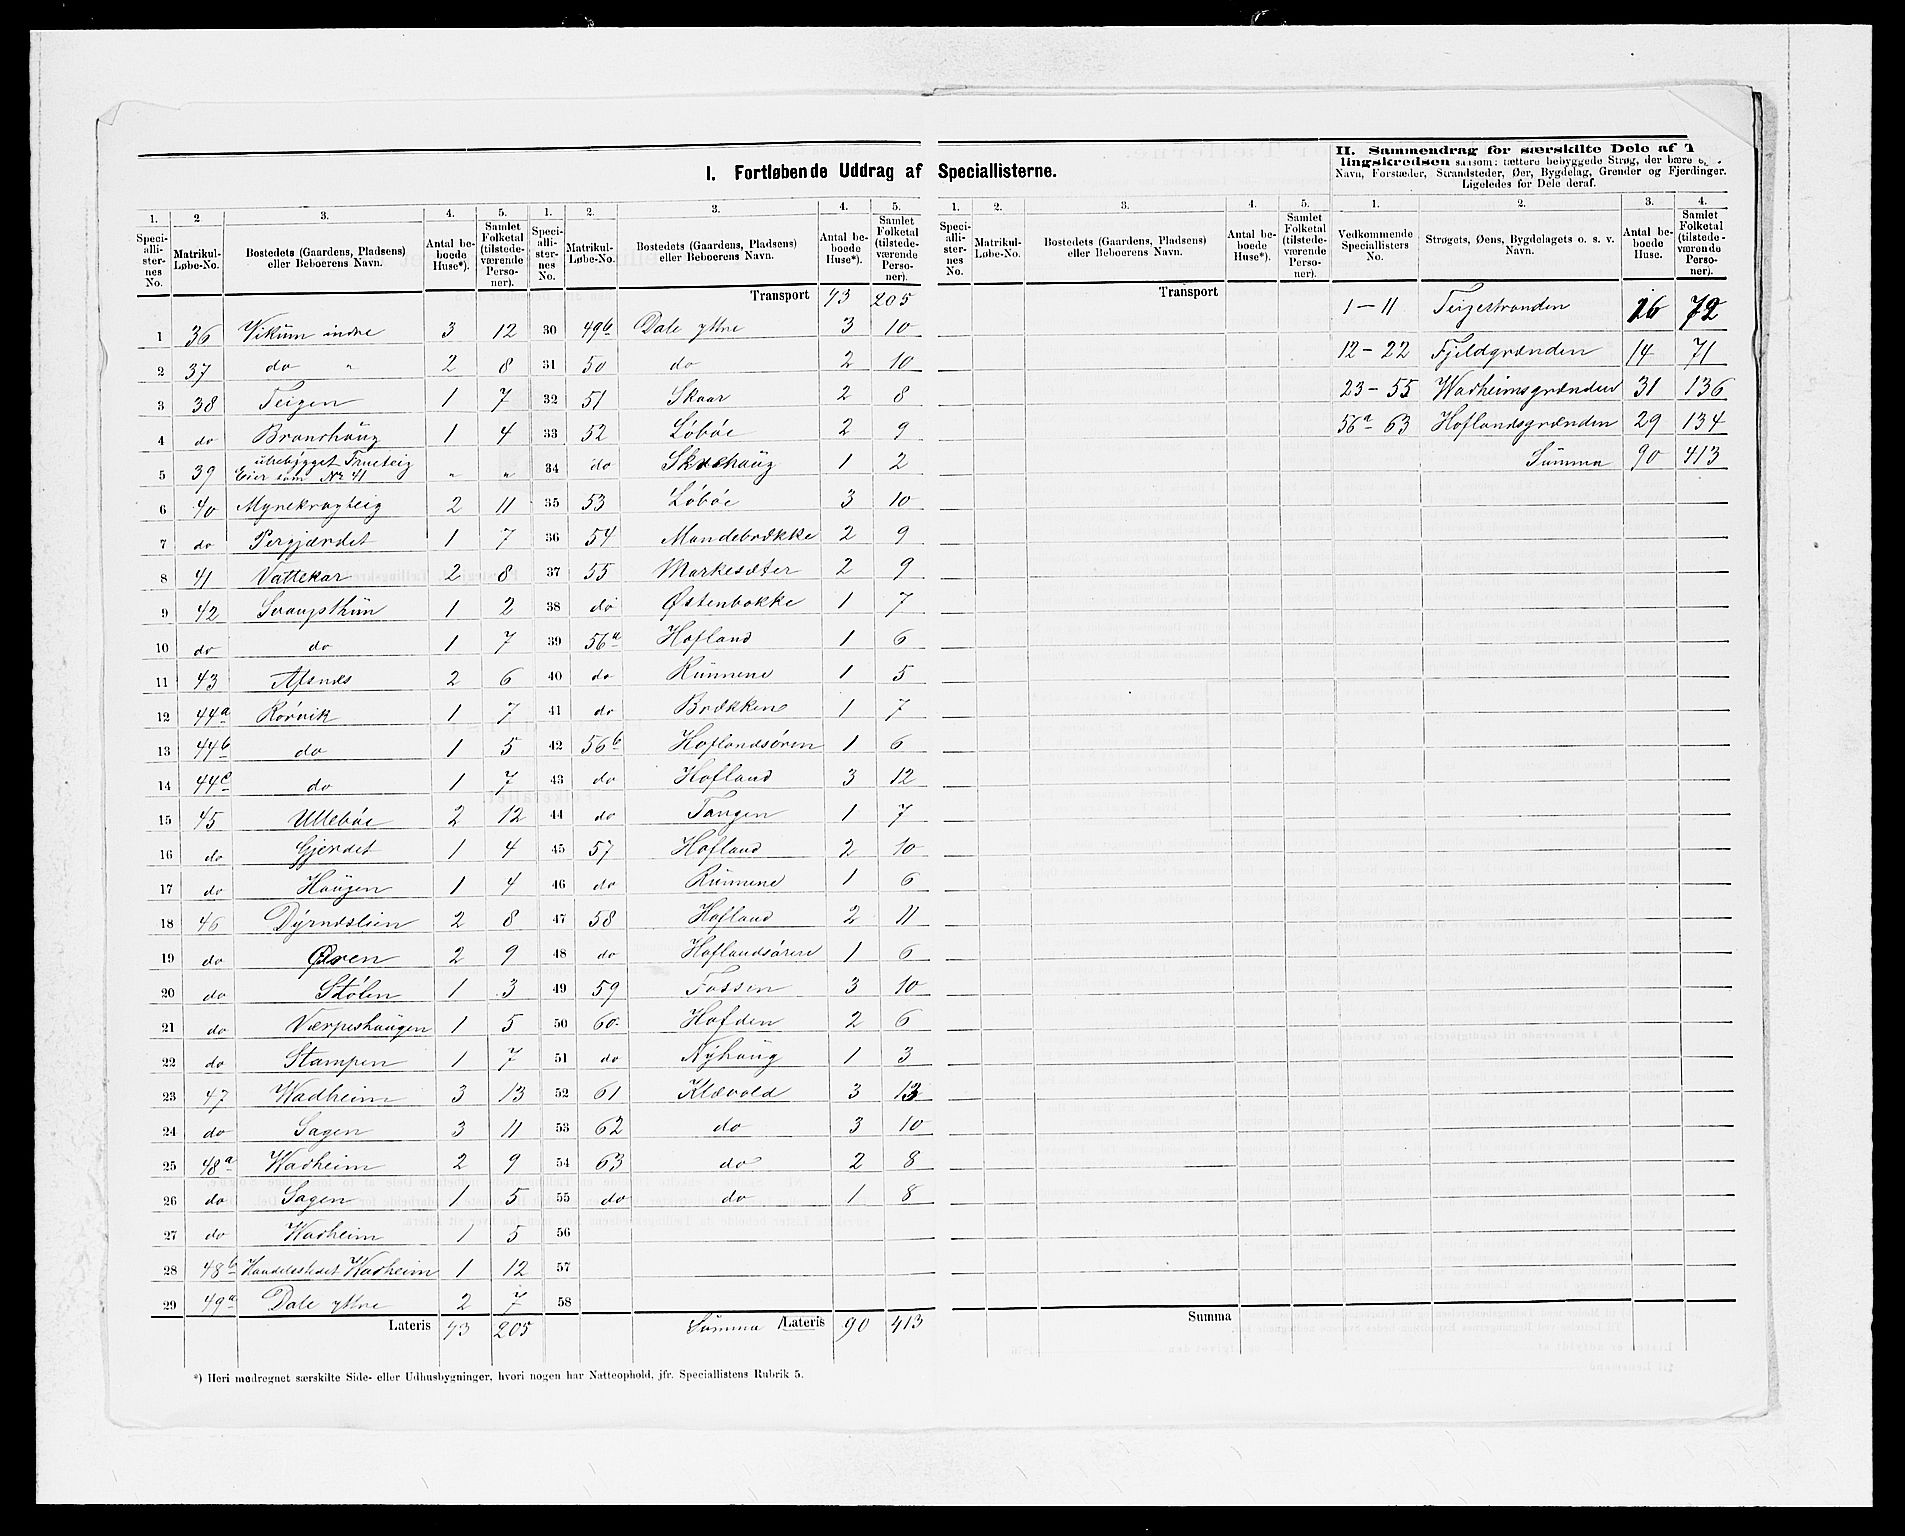 I. Fortløbende Uddrag af Speciallisterne.
1. 2 3. 4. 5. 1. 2. 3. 4. 5.
Speciallisternes No. Matrikul-Løbe-No. Bostedets (Gaardens, Pladsens) eller Beboerens Navn. Antal beboede Huse*). Samlet Folketal (tilstedeværende Personer). Speciallisternes No. Matrikul-Løbe-No. Bostedets (Gaardens, Pladsens) eller Beboerens Navn. Antal beboede Huse*). Samlet Folketal (tilstedeværende Personer).
Transport 43 205
1 36 Vikum indre 3 12 30 49b Dale yttre 3 10
2 37 do " 2 8 31 50 do 2 10
3 38 Teigen 1 7 32 51 Skaar 2 8
4 do Branshaug 1 4 33 52 Løbøe 2 9
5 39 ubebygget Trueteig
Eier som No 41 " " 34 do Skrehaug 1 2
6 40 Myrekragteig 2 11 35 53 Løbøe 3 10
7 do Pergjærdet 1 7 36 54 Mandebrække 2 9
8 41 Vattekar 2 8 37 55 Markesæter 2 9
9 42 Svangsthun 1 2 38 do Østenbakke 1 7
10 do do 1 7 39 56a Hofland 1 6
11 43 Afsnæs 2 6 40 do Runnene 1 5
12 44a Rørvik 1 7 41 do Brækken 1 7
13 44b do 1 5 42 56b Hoflandsøren 1 6
14 44c do 1 7 43 do Hofland 3 12
15 45 Ullebøe 2 12 44 do Tangen 1 7
16 do Gjerdet 1 4 45 57 Hofland 2 10
17 do Haugen 1 4 46 do Runnene 1 6
18 46 Dyrndslien 2 8 47 58 Hofland 2 11
19 do Øren 2 9 48 do Hoflandsøren 1 6
20 do Stølen 1 3 49 59 Fossen 3 10
21 do Værpeshaugen 1 5 50 60 Hofden 2 6
22 do Stampen 1 7 51 do Nyhaug 1 3
23 47 Wadheim 3 13 52 61 Klævold 3 13
24 do Sagen 3 11 53 62 do 3 10
25 48a Wadheim 2 9 54 63 do 2 8
26 do Sagen 1 5 55 do do 1 8
27 do Wadheim 1 5 56
28 48b Handelsstedet Wadheim 1 12 57
29 49a Dale yttre 2 7 58
Lateris 43 205 Summa /Lateris 90 413
*) Heri medregnet særskilte Side- eller Udhusbygninger, hvori nogen har Natteophold, jfr. Speciallistens Rubrik 5.
1. 2. 3. 4. 5.
Speciallisternes No. Matrikul-Løbe-No. Bostedets (Gaardens, Pladsens) eller Beboerens Navn. Antal beboede Huse*). Samlet Folketal (tilstedeværende Personer).
Transport
Summa
II. Sammendrag for særskilte Dele af T
lingskredsen saasom: tættere bebyggede Strøg, der bære e
Navn, Forstæder, Strandsteder, Øer, Bygdelag, Grender og Fjerdinger.
Ligeledes for Dele deraf.
1. 2. 3. 4.
Vedkommende Speciallisters No. Strøgets, Øens, Bygdelagets o. s. v. Navn. Antal beboede Huse. Samlet Folketal (tilstedeværende Personer).
1-11 Teigestranden 16 72
12-22 Fjeldgrænden 14 71
23-55 Wadheimsgrænden 31 136
56a-63 Hoflandsgrænden 29 134
Summa 90 413